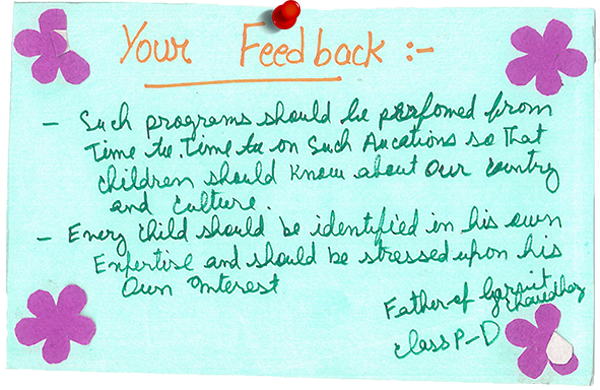 Your Feedback :-
- Such programs should be perfomed from
Time to. Time to on Such Aucations so That
children should know about our country
and culture.
- Every child should be identified in his own
Expertise and should be stressed upon his
Own Interest
Father of Garvit
Chaudhary
class P-D